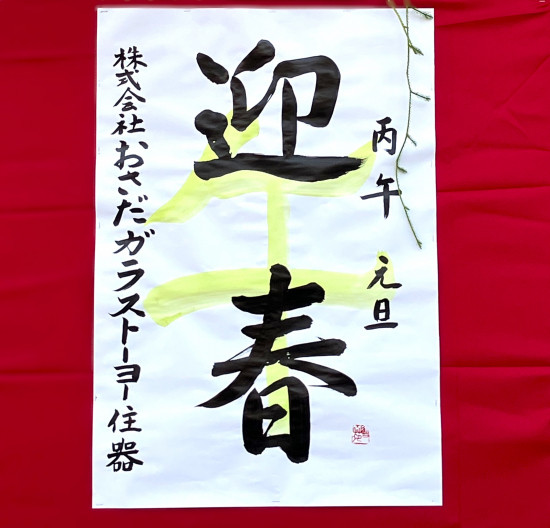 丙午 元旦
迎春
午
株式会社おさだガラストーヨー住器